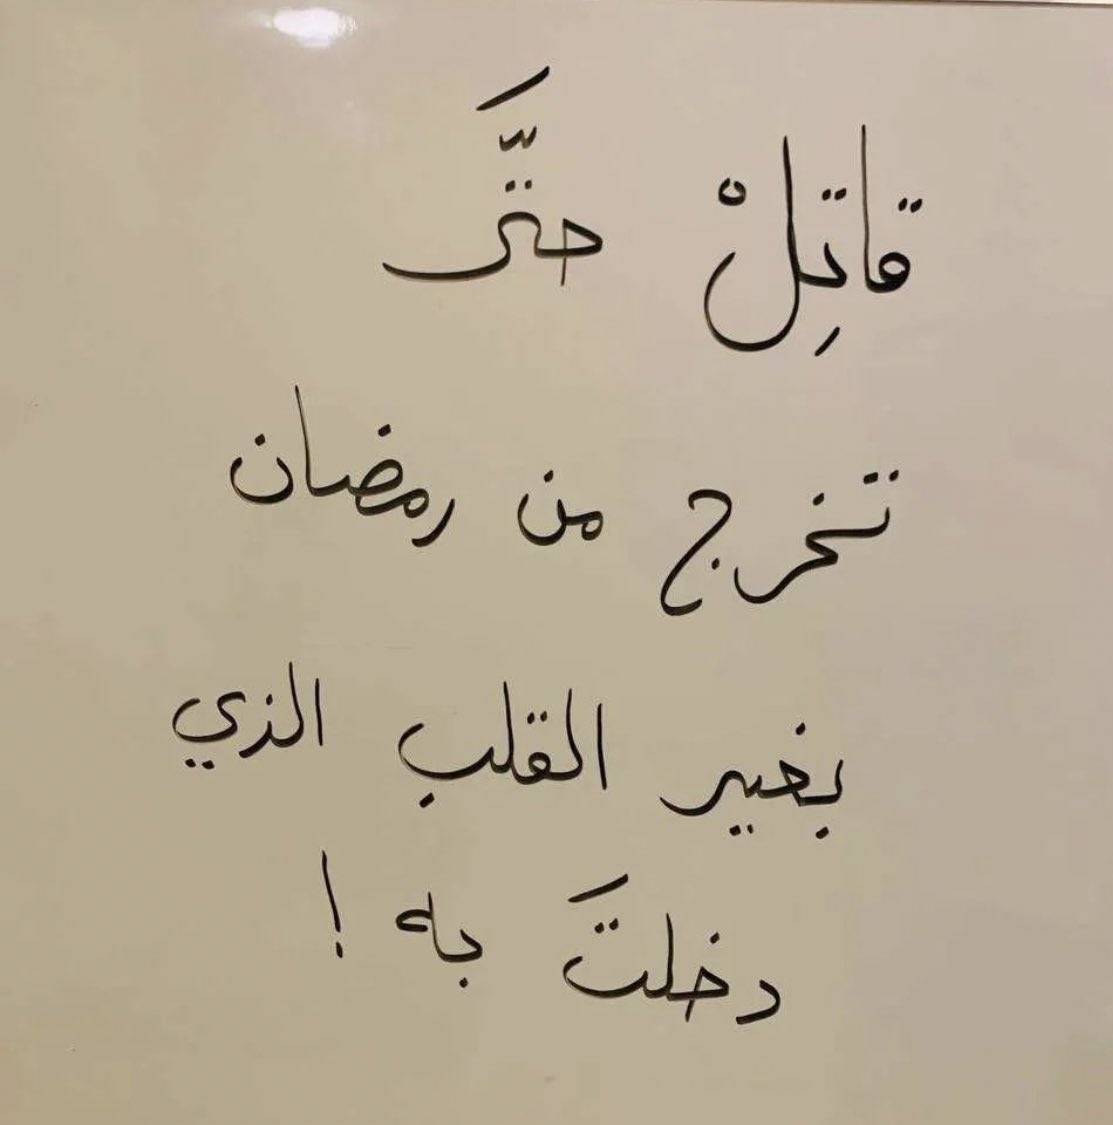 قاتِلْ حتَّى
تخرج من رمضان
بغير القلب الذي
دخلتَ به !